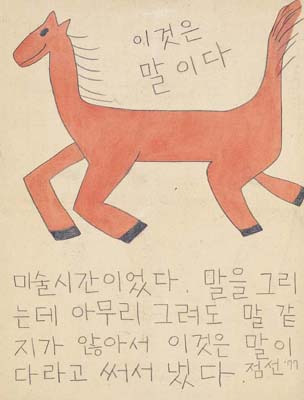 이것은
말이다
미술시간이었다. 말을 그리
는데 아무리 그려도 말 같
지가 않아서 이것은 말이
다라고 써서 냈다. 점선 '77